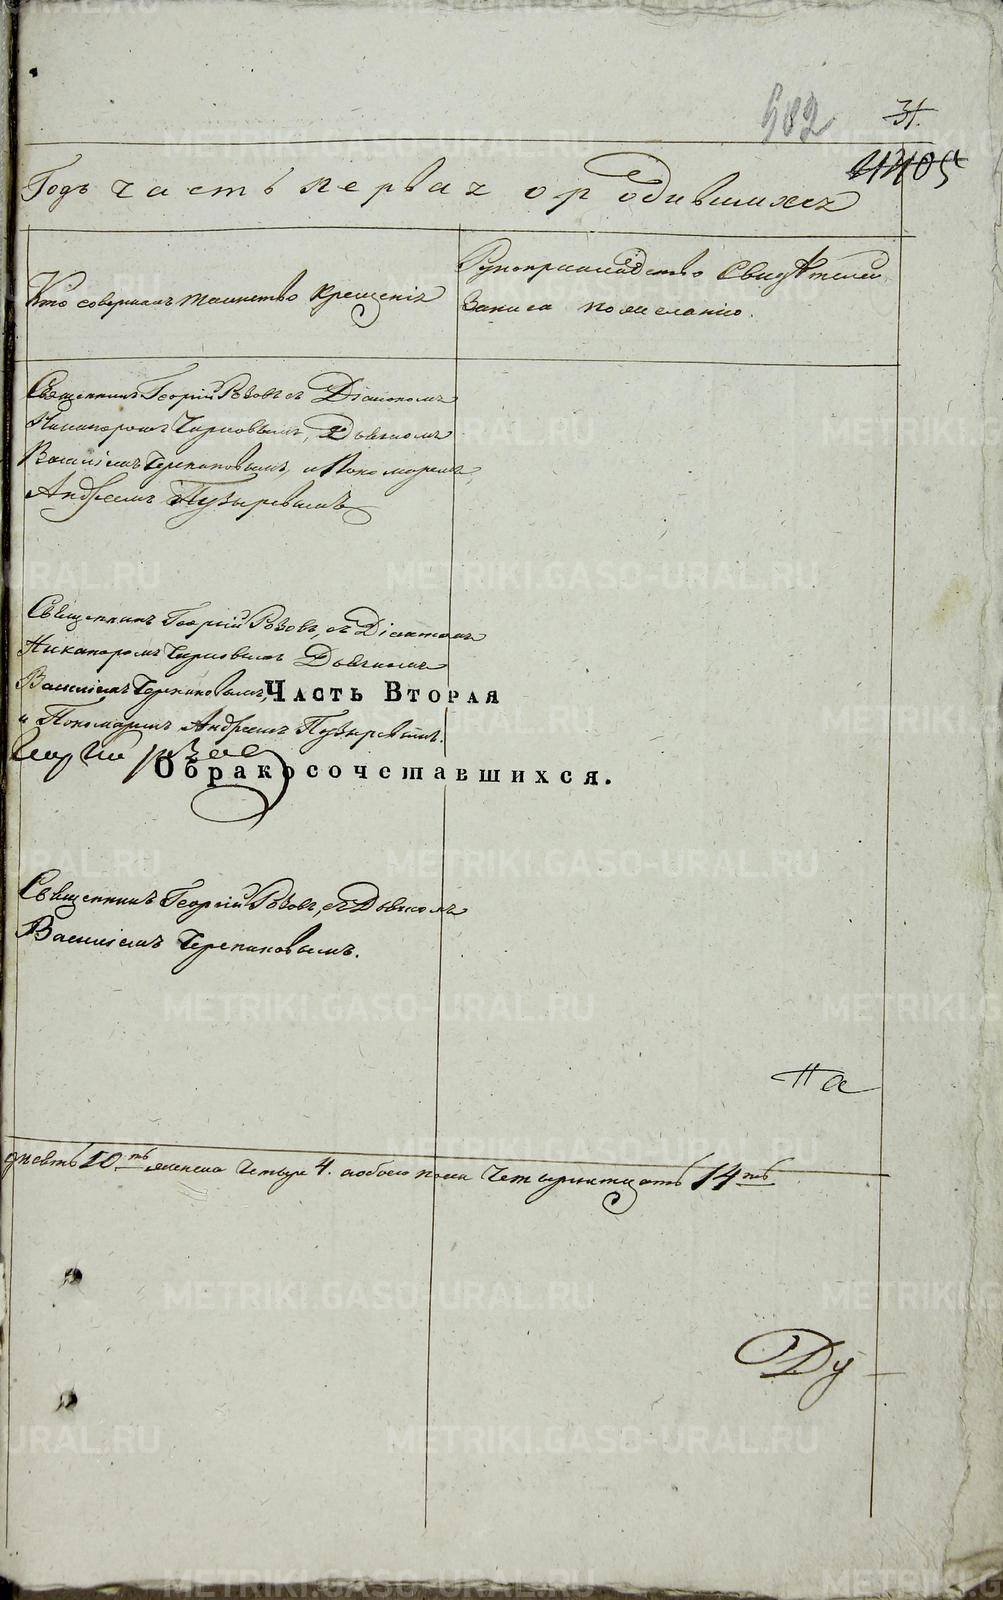 682
31.
Годъ часть первая о родившихся
Кто совершалъ таинство крещенія
Рукоприкладство Свидѣтелей
записа по желанію.
Священникъ Георгій Розовъ съ Діакономъ
Никаноромъ Черновымъ, Дьячкомъ
Василіемъ Черепановымъ, и Пономаремъ
Андреемъ Пузыревымъ
Священникъ Георгій Розовъ, съ Діакономъ
Никаноромъ Черновымъ Дьячкомъ
Василіемъ Черепановымъ,
Часть Вторая
и Пономаремъ Андреемъ Пузыревымъ.
О бракосочетавшихся.
Священникъ Георгій Розовъ, съ Дьячкомъ
Василіемъ Черепановымъ.
На
10.ть женска четыре 4. а обоего пола Четырнатцать 14ть
Ду
METRIKI.GASO-URAL.RU